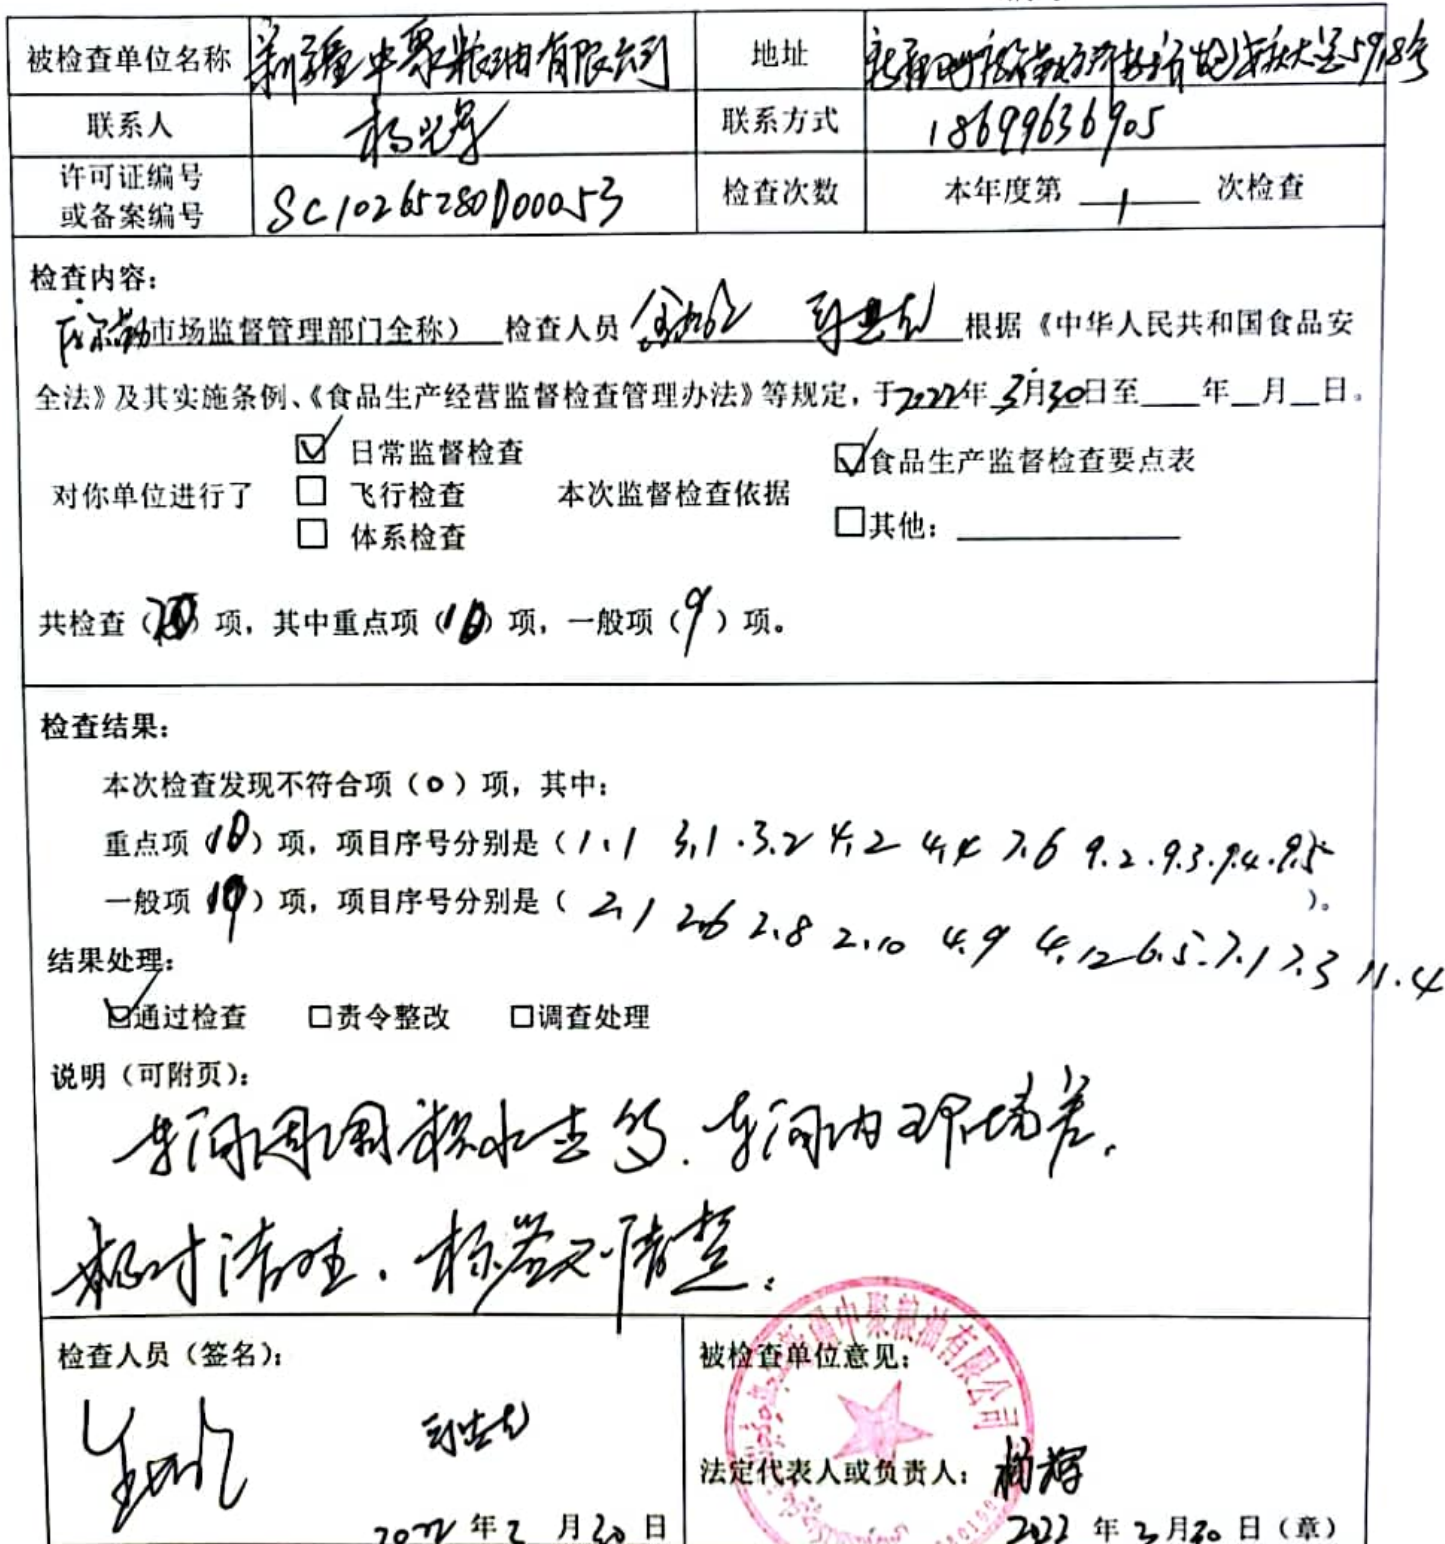 被检查单位名称 新疆中聚粮油有限公司 地址 5918号
联系人 联系方式 18699636905
许可证编号或备案编号 SC10265280D00053 检查次数 本年度第 1 次检查
检查内容：
库尔勒市场监督管理部门全称） 检查人员 根据《中华人民共和国食品安
全法》及其实施条例、《食品生产经营监督检查管理办法》等规定，于2022年3月30日至 年 月 日。
对你单位进行了 ☑日常监督检查 □飞行检查 □体系检查 本次监督检查依据 ☑食品生产监督检查要点表 □其他：
共检查（）项，其中重点项（10）项，一般项（9）项。
检查结果：
本次检查发现不符合项（0）项，其中：
重点项（10）项，项目序号分别是（1.1 3.1.3.2 4.2 4.4 7.6 9.2.9.3.9.4.9.5
一般项（）项，项目序号分别是（2.1 2.6 2.8 2.10 4.9 4.12 6.5.7.1 7.3 11.4）。
结果处理：
☑通过检查 □责令整改 □调查处理
说明（可附页）：
车间周围积水去多.车间内环境差.
及时清理.标签不清楚.
检查人员（签名）： 被检查单位意见：
新疆中聚粮油有限公司
法定代表人或负责人：杨辉
2022年3月30日 2022年3月30日（章）